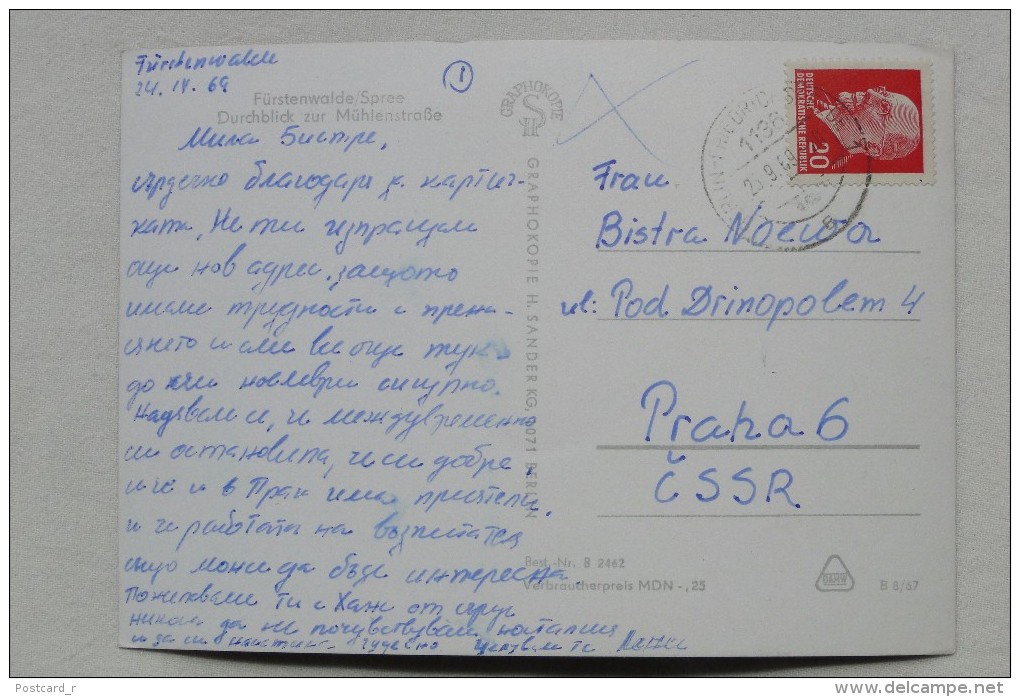 Fürstenwalde
24. IV. 69
Fürstenwalde/Spree
Durchblick zur Mühlenstraße
1
Мила Бистре,
сърдечно благодаря за картич-
ката, Не ти изпращам
още нов адрес, защото
имаме трудности с преме-
до ноември сигурно.
Надявам се, че междувременно
си установила, че си добре,
и че и в Прага имаш приятели.
и че работата на
също може да бъде интересна.
Пожелавам ти с от сърце
никога да не почувствувам носталгия
GRAPHOKOPIE
GRAPHOKOPIE H. SANDER KG, 1071 BERLIN
DEUTSCHE
DEMOKRATISCHE REPUBLIK
20
1136
Frau
Bistra Noewa
ul: Pod Drinopolem 4
Praha 6
ČSSR
Best.-Nr. B 2462
Verbraucherpreis MDN -,25
DAMW
B 8/67
Postcard_r
www.delcampe.net